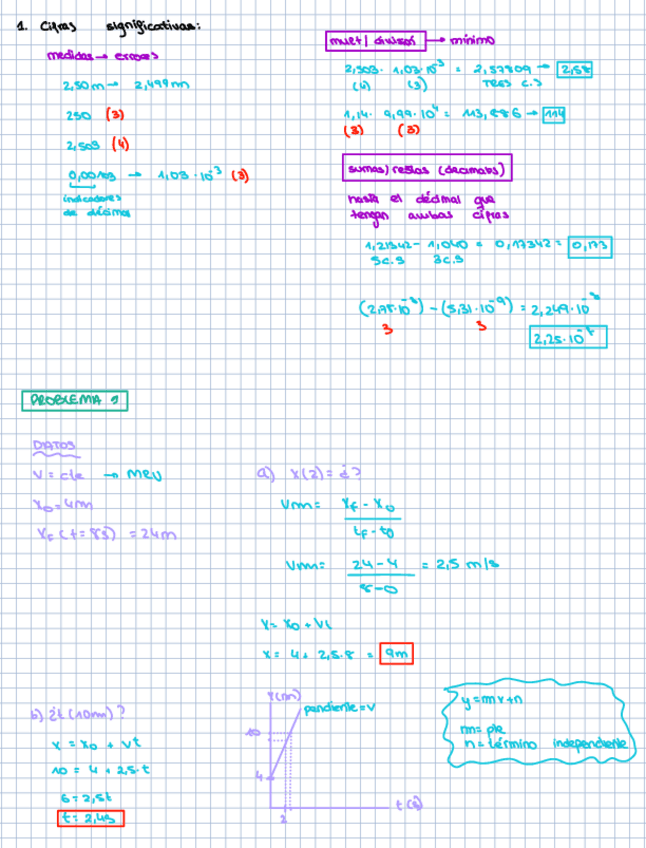 1. Cifras significativas:
medidas → errores
2,50m → 2,499m
250 (3)
2,503 (4)
0,00103 → 1,03·10⁻³ (3)
indicadores
de décima
mult/divisós → mínimo
2,503 · 1,03·10⁻³ = 2,57809 → 2,58
(4) (3) TRES C.S
1,14 · 9,99·10⁴ = 113,886 → 114
(3) (3)
sumas/restas (decimales)
hasta el décimal que
tengan ambas cifras
1,21342 - 1,040 = 0,17342 = 0,173
5c.s 3c.s
(2,78·10⁻⁸) - (5,31·10⁻⁹) = 2,249·10⁻⁸
3 3
2,25·10⁻⁸
PROBLEMA 1
DATOS
V = cte → MRU
x₀ = 4m
x_F (t=8s) = 24m
a) x(2) = ¿?
Vm = x_F - x₀
t_F - t₀
Vm = 24 - 4 = 2,5 m/s
8 - 0
x = x₀ + vt
x = 4 + 2,5·8 = 9m
b) ¿t (10m)?
x = x₀ + vt
10 = 4 + 2,5·t
6 = 2,5t
t = 2,4s
Y(m)
pendiente = V
10
4
2
t (s)
y = mx + n
m = pte
n = término independiente